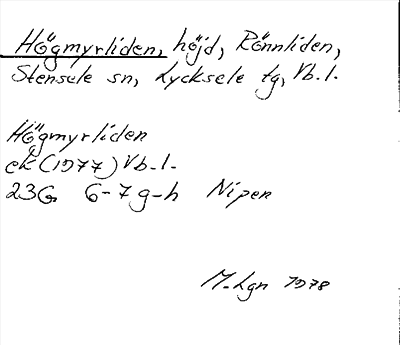 Högmyrliden, höjd, Rönnliden,
Stensele sn, Lycksele tg, Vb.l.
Högmyrliden
ek (1977) Vb.l.
23G 6-7 g-h Nipen
M.Lgn 1978